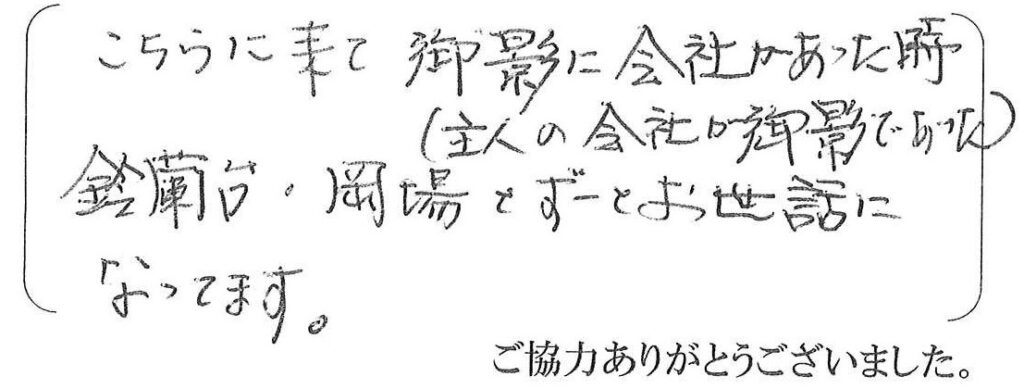 こちらに来て 御影に会社があった時
(主人の会社が御影であった)
鈴蘭台・岡場とずーとお世話に
なってます。
ご協力ありがとうございました。